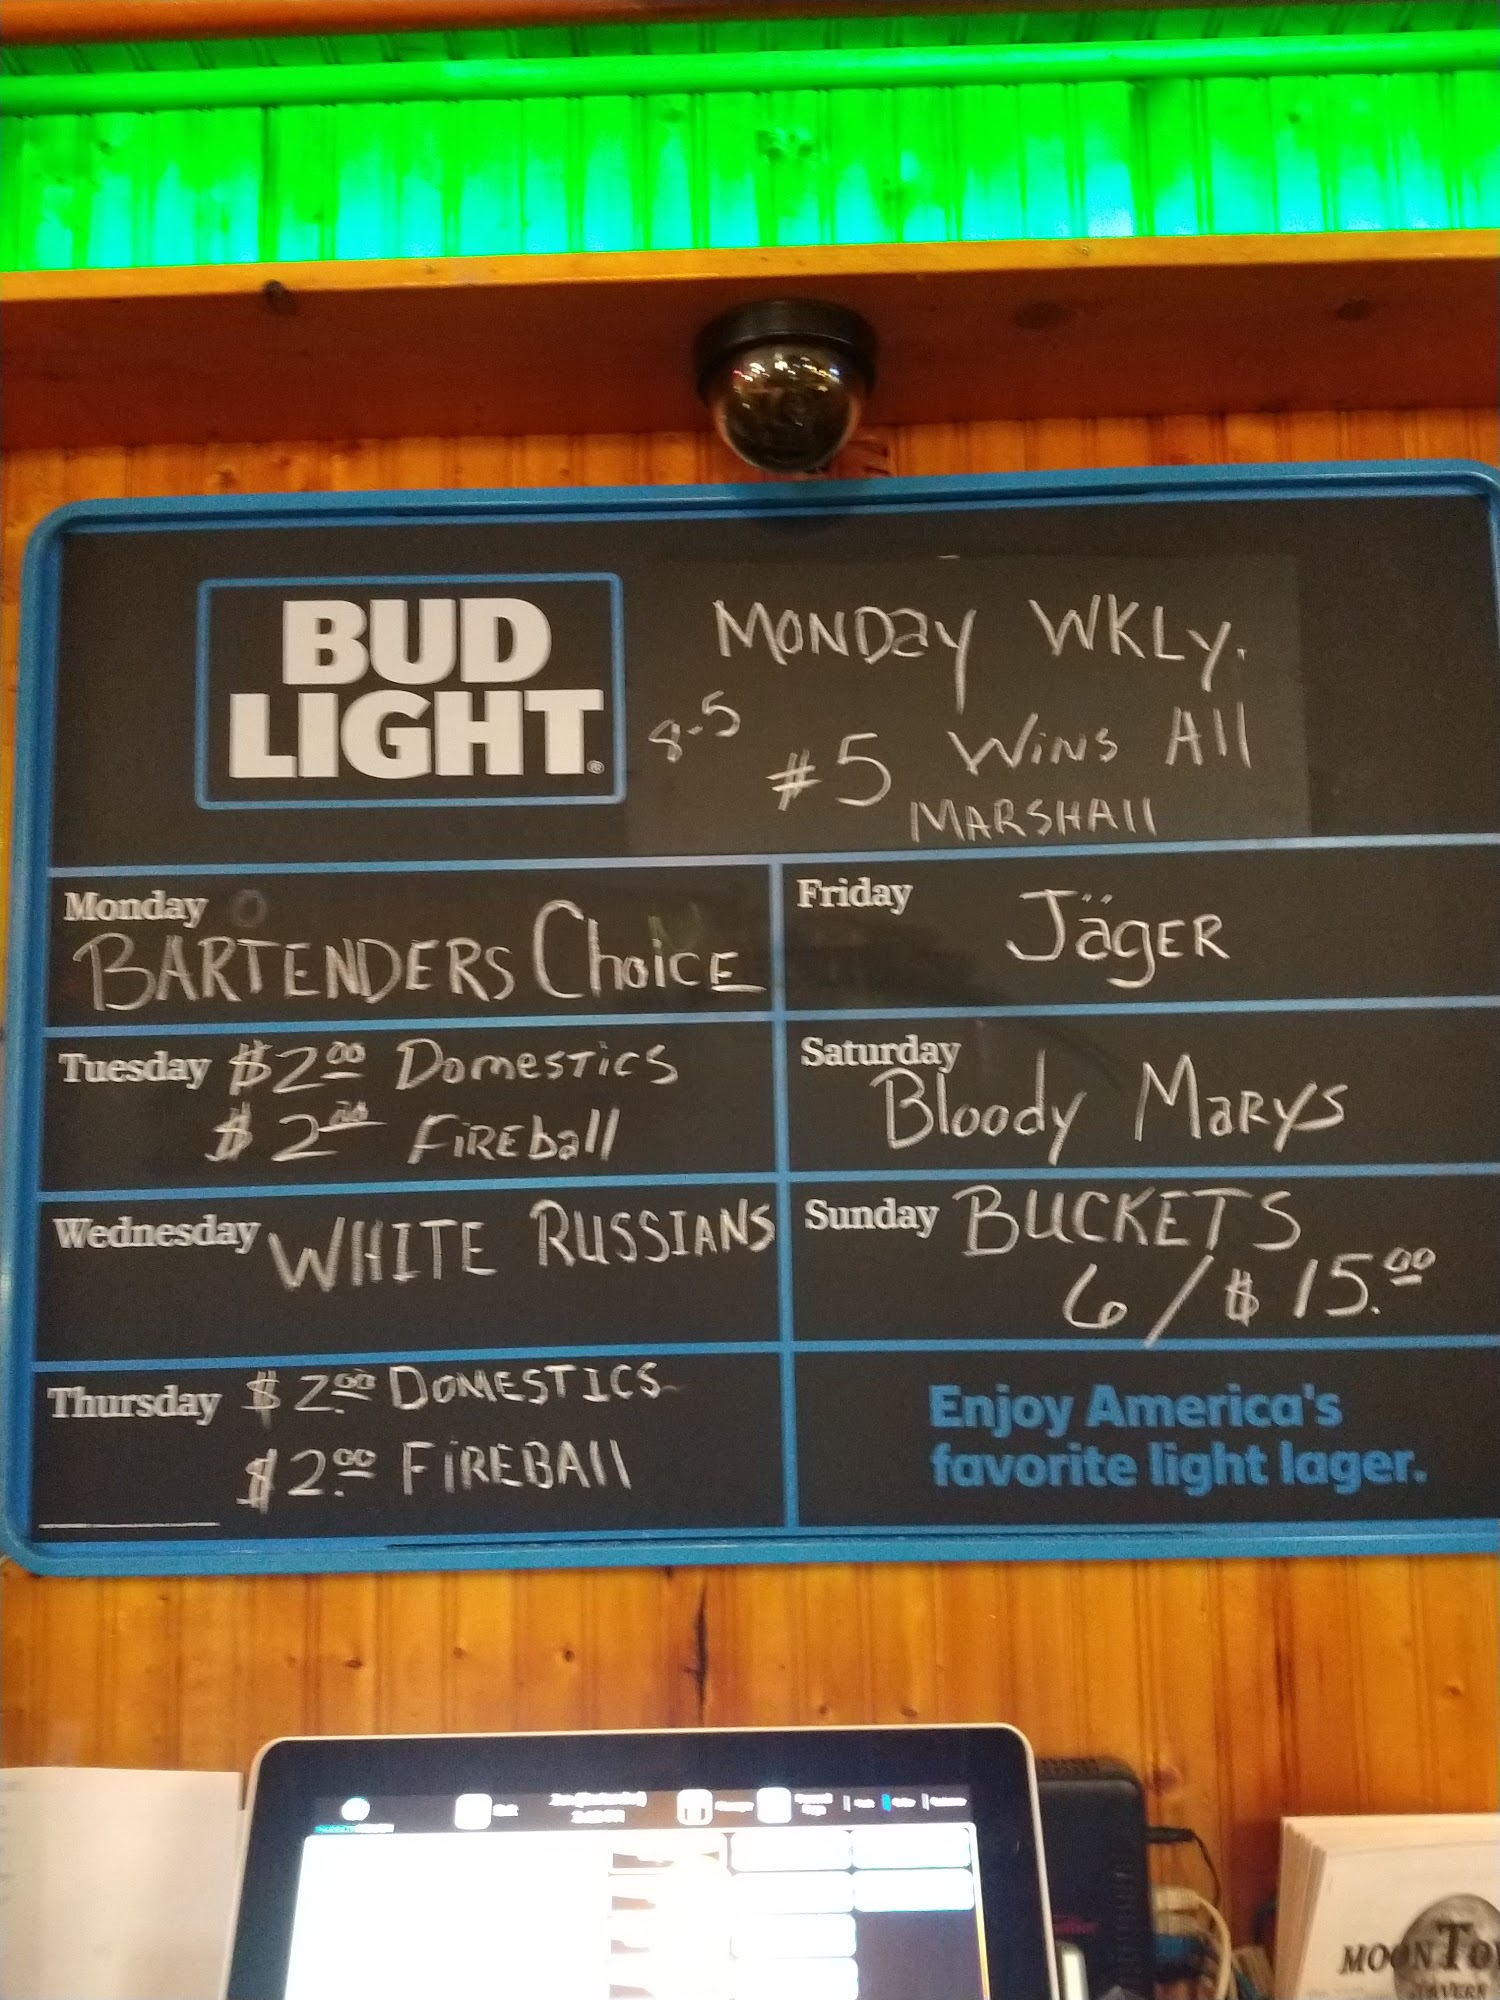 BUD
LIGHT®
MONDAY WKLY.
8-5
#5 WINS All
MARSHAll
Monday
BARTENDERS ChoicE
Tuesday $2.00 DomesticS
$2.00 FiREball
Wednesday WHITE RUSSIANS
Thursday $2.00 DOMESTICS
$2.00 FiREBAll
Friday JägER
Saturday
Bloody MaRYS
Sunday BUCKETS
6/$15.00
Enjoy America's
favorite light lager.
MOON